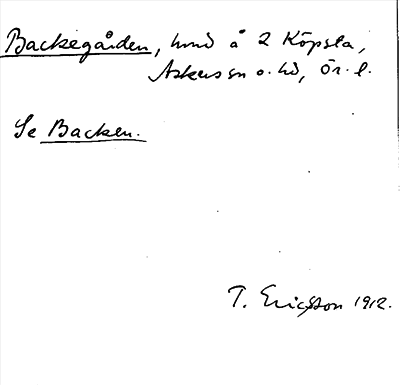 Backegården, hmd å 2 Köpsta,
Askers sn o. hd, Ör. l.
Se Backen.
T. Ericsson 1912.